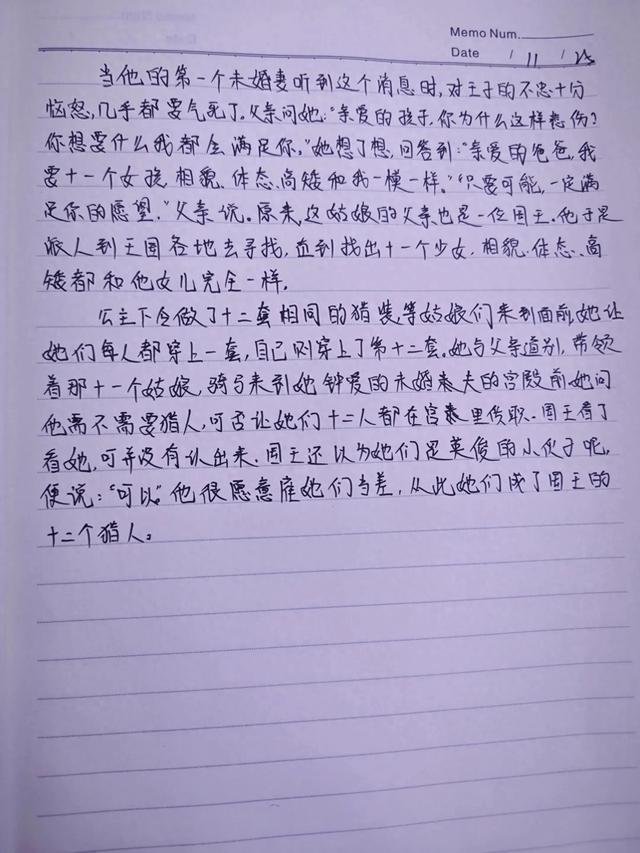 Memo Num.
Date / 11 / 25
当他的第一个未婚妻听到这个消息时,对王子的不忠十分
恼怒,几乎都要气死了。父亲问她:“亲爱的孩子,你为什么这样悲伤?
你想要什么我都会满足你,”她想了想,回答到:“亲爱的爸爸,我
要十一个女孩,相貌、体态、高矮和我一模一样。”“只要可能,一定满
足你的愿望。”父亲说。原来,这姑娘的父亲也是一位国王。他于是
派人到王国各地去寻找,直到找出十一个少女,相貌、体态、高
矮都和他女儿完全一样。
公主下令做了十二套相同的猎装,等姑娘们来到面前,她让
她们每人都穿上一套,自己则穿上了第十二套。她与父亲道别,带领
着那十一个姑娘,骑马来到她钟爱的未婚夫的宫殿前,她问
他需不需要猎人,可否让她们十二人都在宫里供职。国王看了
看她,可并没有认出来。国王还以为她们是英俊的小伙子呢,
便说:“可以。”他很愿意雇她们当差,从此她们成了国王的
十二个猎人。